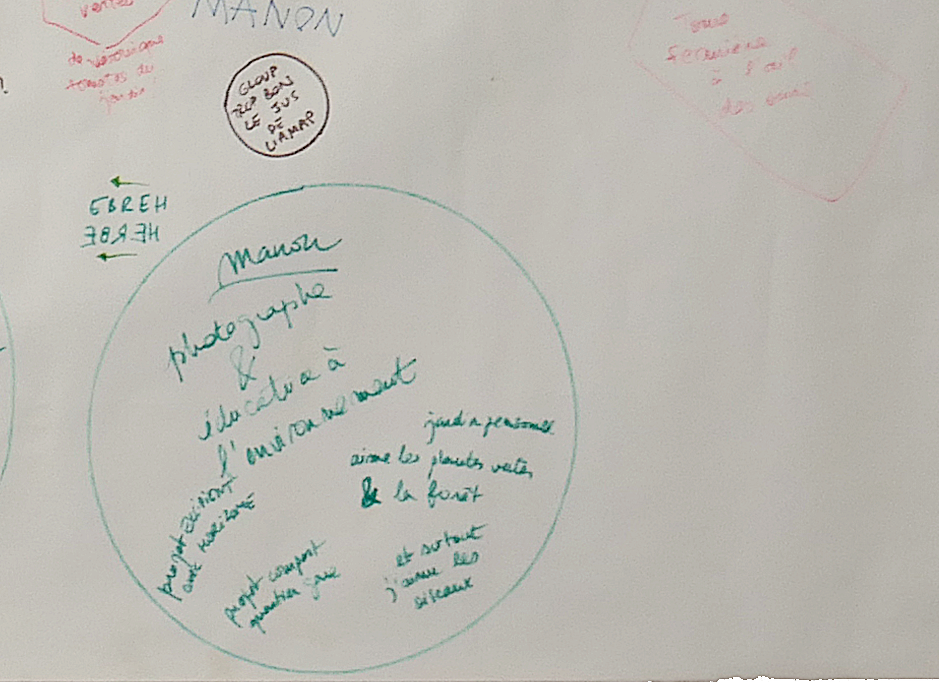 MANON
vertes
de véronique
tomates du
jardin
?
GLOUP
TROP BON
LE JUS
DE
L'AMAP
Tome
à l'ail
des ours
EBREH
HERBE
Manon
photographe
&
éducatrice à
l'environnement
jardin personnel
aime les plantes vertes
& la forêt
projet
avec HORIZOME
projet compost
quartier gare
et surtout
j'aime les
oiseaux